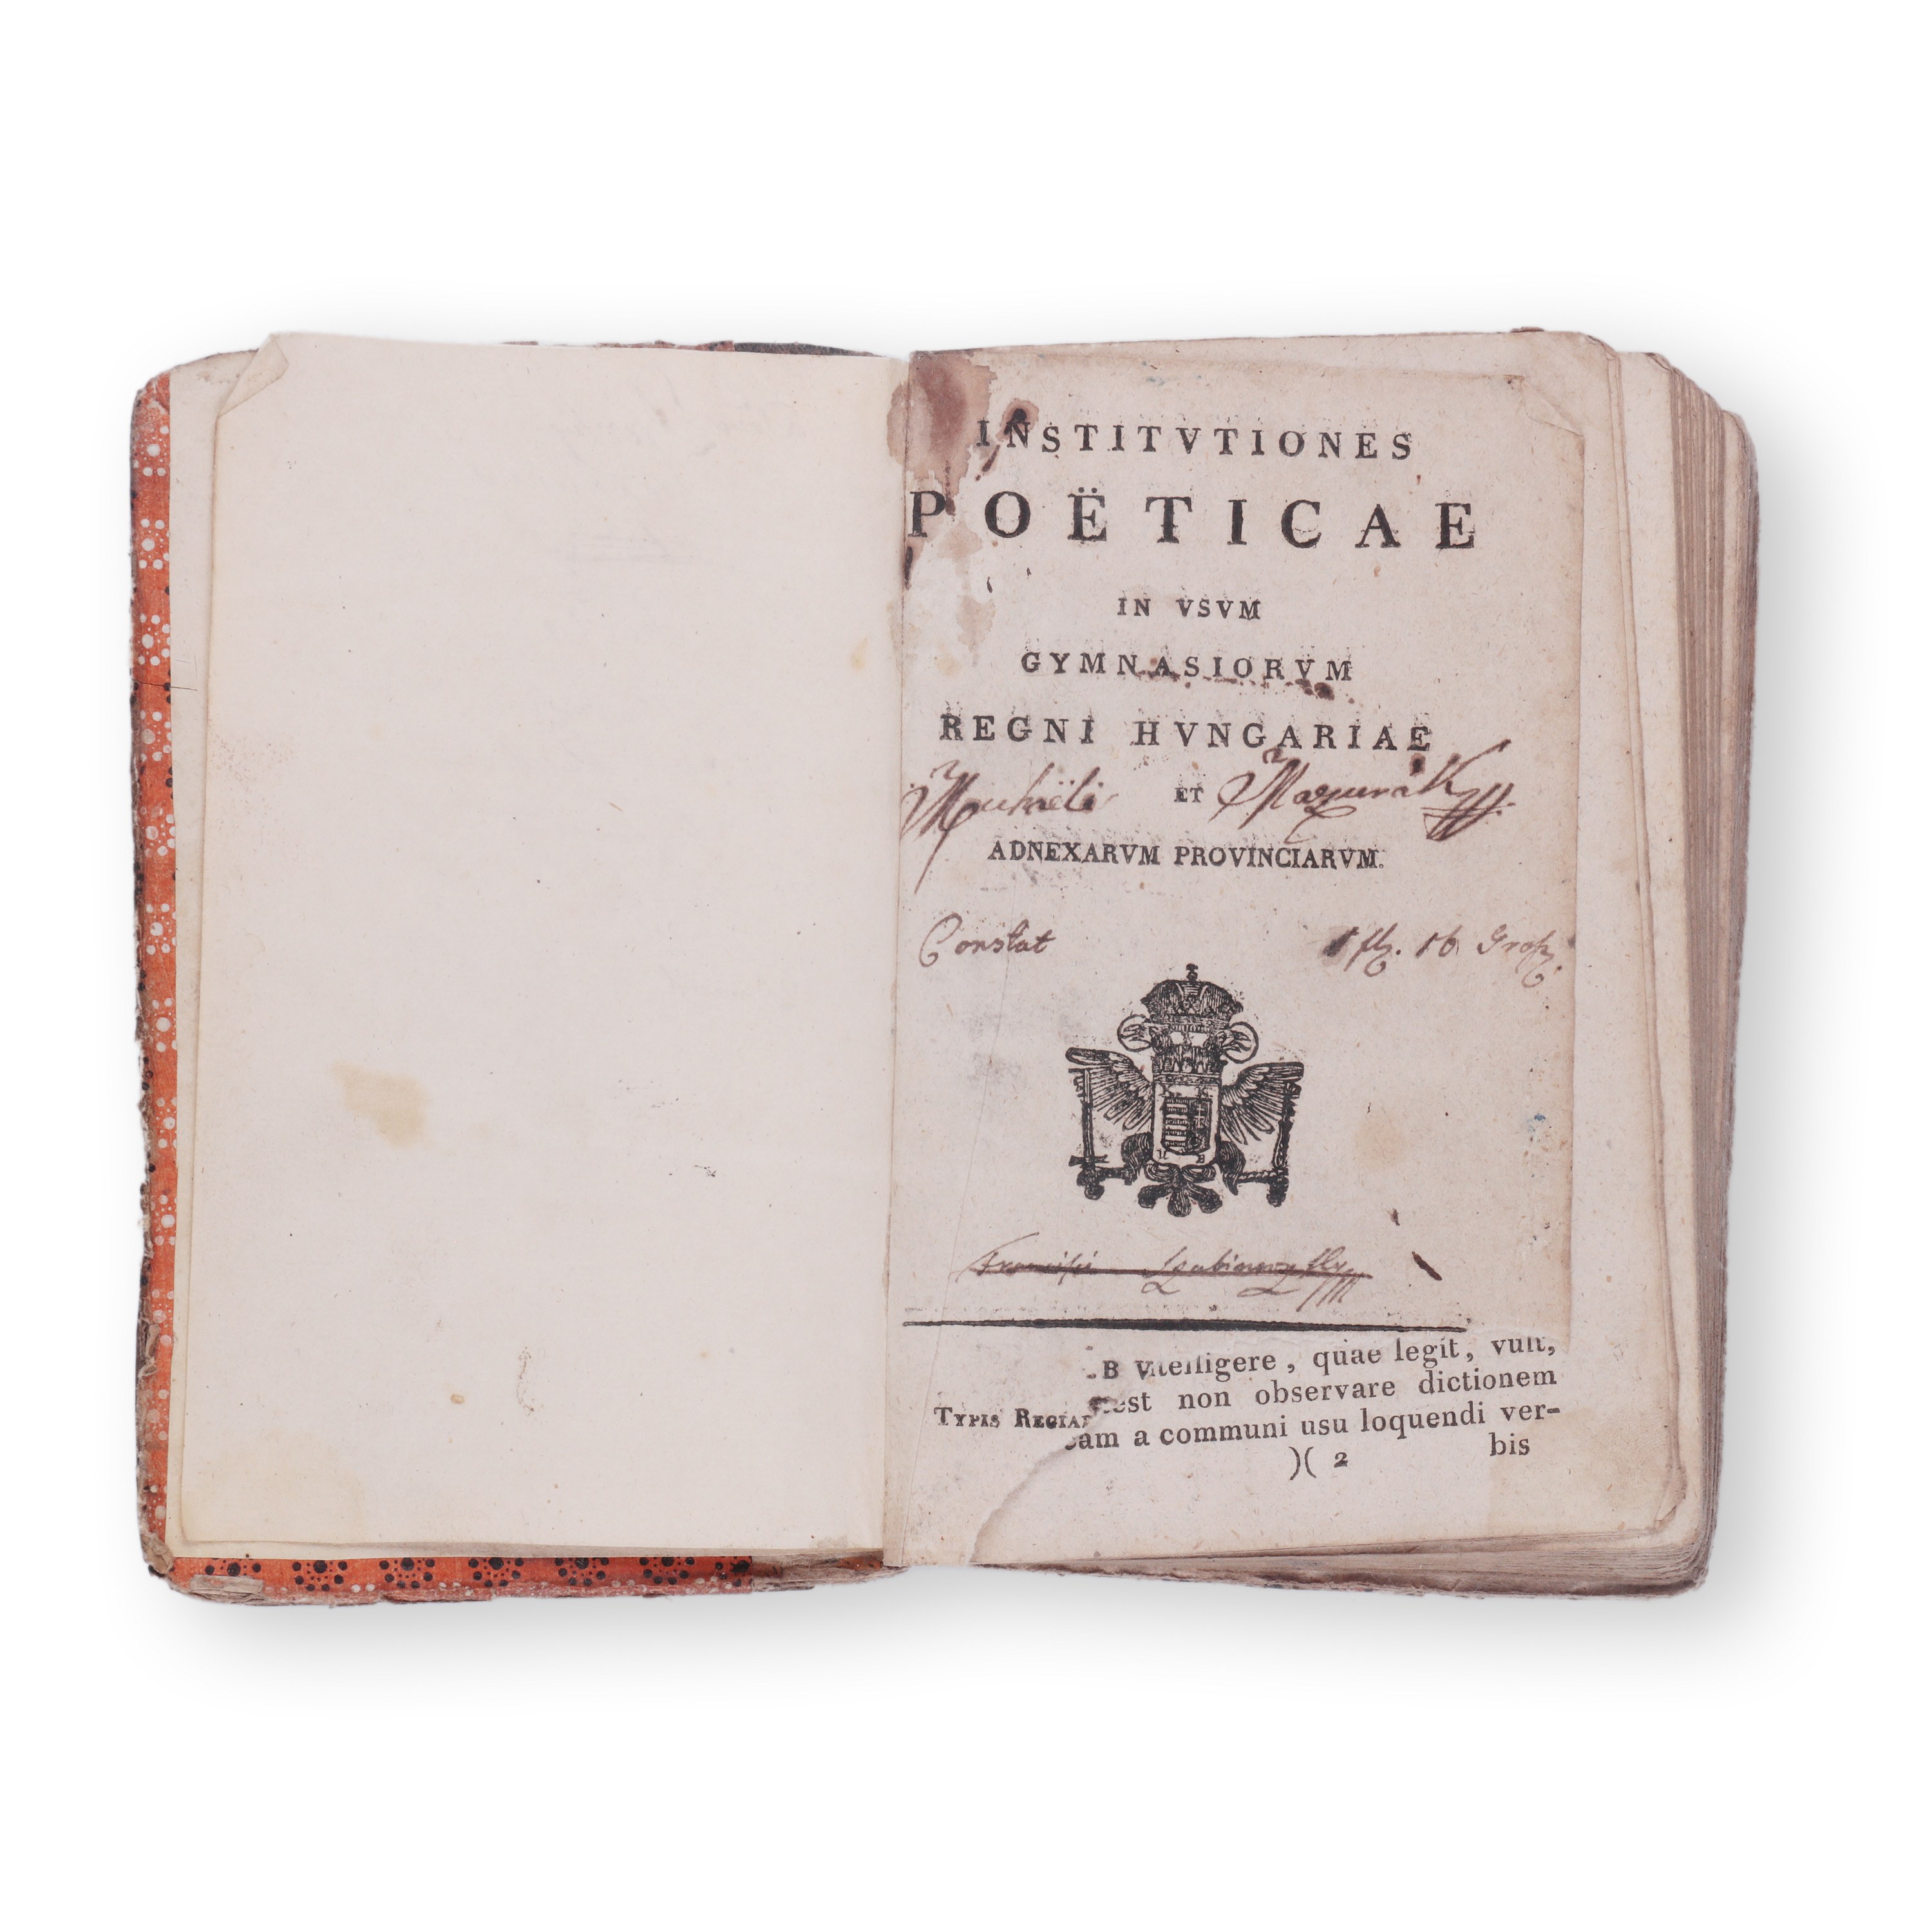 INSTITVTIONES
POËTICAE
IN VSVM
GYMNASIORVM
REGNI HVNGARIAE
ET
ADNEXARVM PROVINCIARVM.
Constat 1 fl. 16 Gros.
B
telligere, quae legit, vult,
est non observare dictionem
TYPIS REGIAE
eam a communi usu loquendi ver-
bis
)( 2